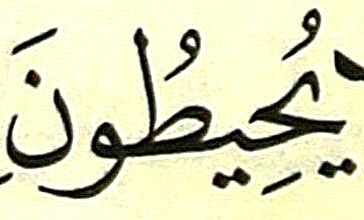 يُحِيطُونَ